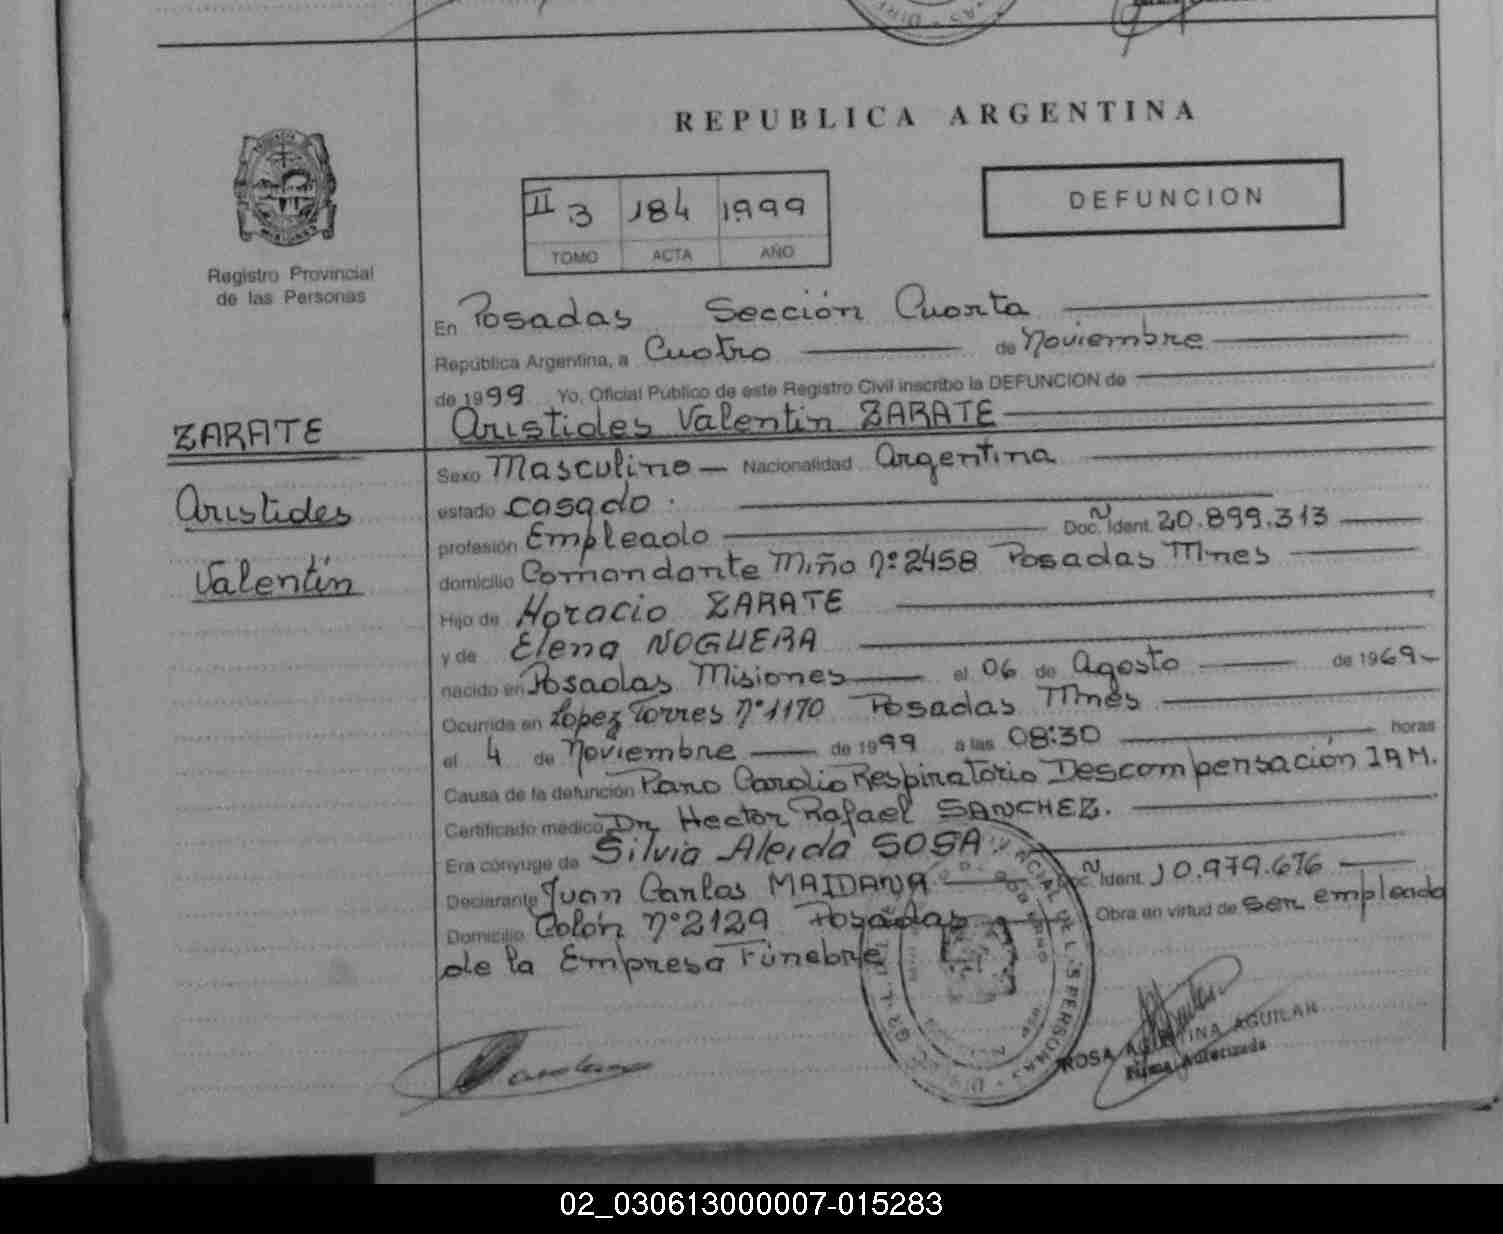 REPUBLICA ARGENTINA
DEFUNCION
II 3 184 1999
TOMO ACTA AÑO
Registro Provincial
de las Personas
En Posadas Sección Cuarta
República Argentina, a Cuatro de Noviembre
de 1999 Yo, Oficial Público de este Registro Civil inscribo la DEFUNCION de
Aristides Valentin ZARATE
ZARATE
Aristides
Valentín
Sexo Masculino Nacionalidad Argentina
estado casado
profesión Empleado Doc. N Ident. 20.899.313
domicilio Comandante Miño Nº 2458 Posadas Mnes
Hijo de Horacio ZARATE
y de Elena NOGUERA
nacido en Posadas Misiones el 06 de Agosto de 1969
Ocurrida en Lopez Torres Nº 1170 Posadas Mnes
el 4 de Noviembre de 1999 a las 08:30 horas
Causa de la defunción Paro Cardio Respiratorio Descompensación IAM.
Certificado médico Dr. Hector Rafael SANCHEZ.
Era cónyuge de Silvia Aleida SOSA
Declarante Juan Carlos MAIDANA Doc. N Ident. 10.979.676
Domicilio Colón Nº 2129 Posadas Obra en virtud de ser empleado
de la Empresa Fúnebre
ROSA AGUSTINA AGUILAR
Firma Autorizada
02_030613000007-015283